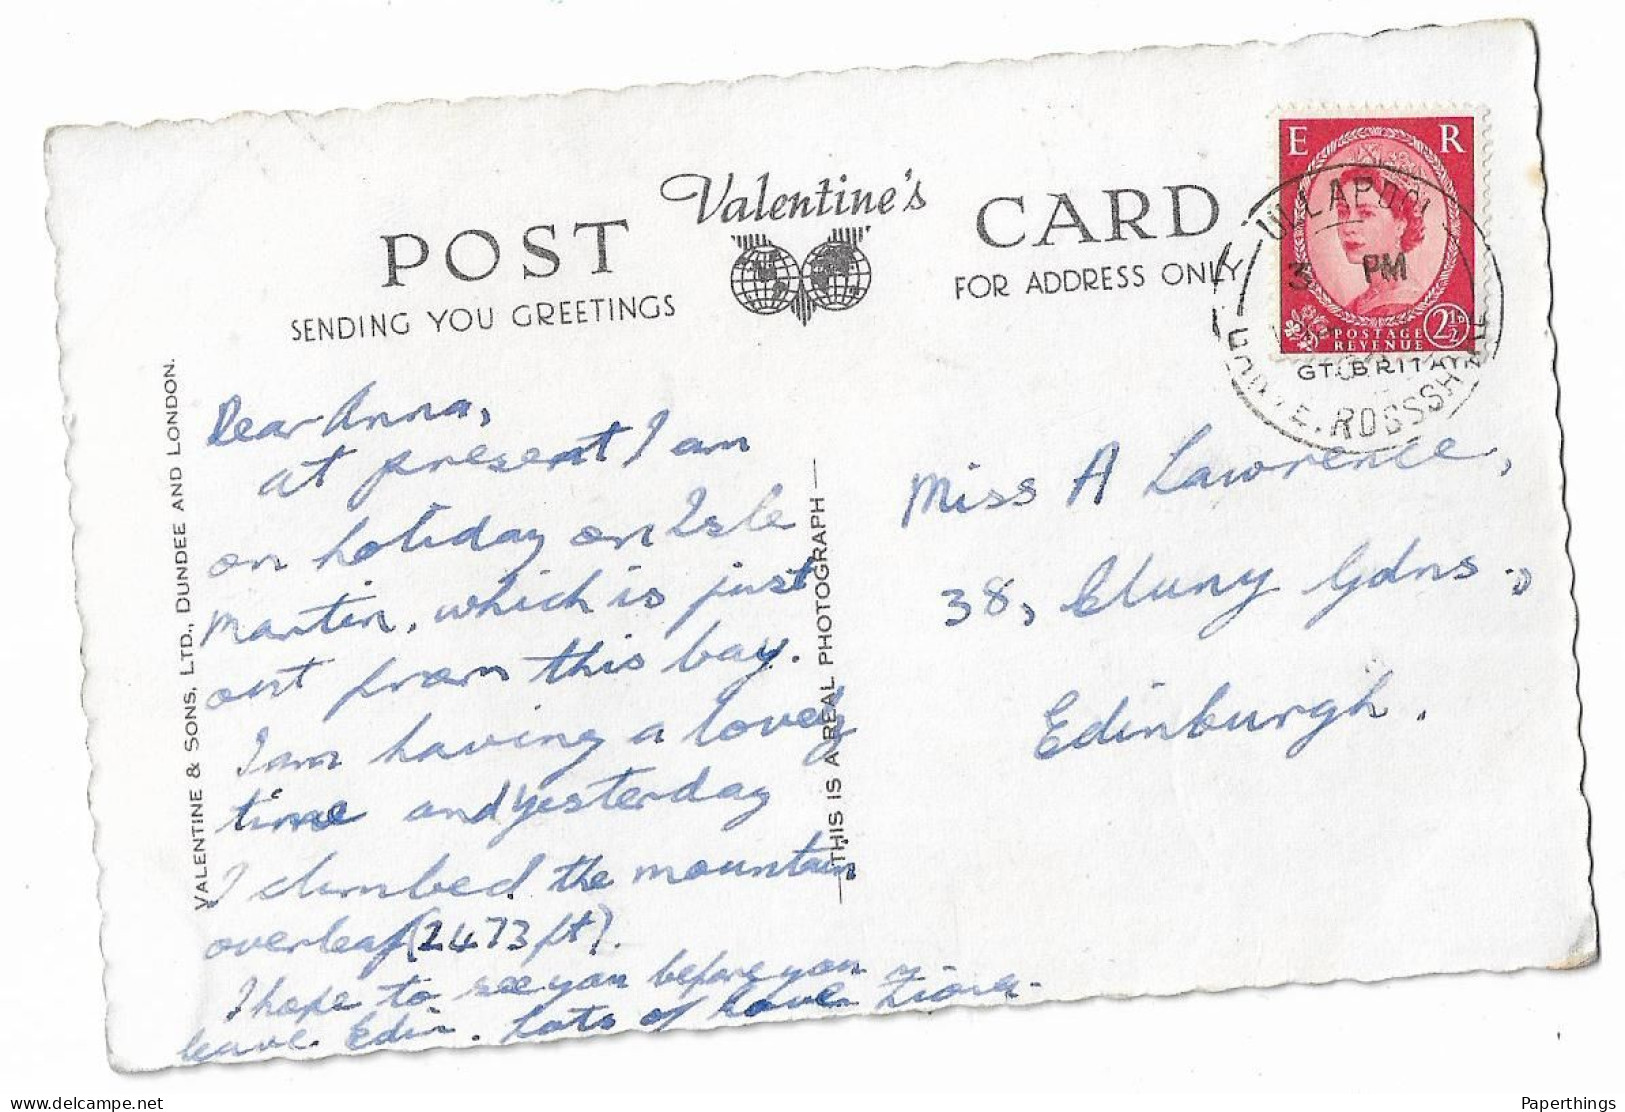 POST Valentine's CARD
SENDING YOU GREETINGS
FOR ADDRESS ONLY
E R
POSTAGE
REVENUE
2½D
ULLAPOOL
3 PM
ROSSSHIRE
GT. BRITAIN
VALENTINE & SONS, LTD., DUNDEE AND LONDON.
THIS IS A REAL PHOTOGRAPH
Dear Anna,
at present I am
on holiday on Isle
Martin, which is just
out from this bay.
I am having a lovely
time and yesterday
I climbed the mountain
overleaf (2473 ft).
I hope to see you before you
leave Edin. Lots of love
Miss A Lawrence,
38, Cluny Gdns.,
Edinburgh.
Paperthings